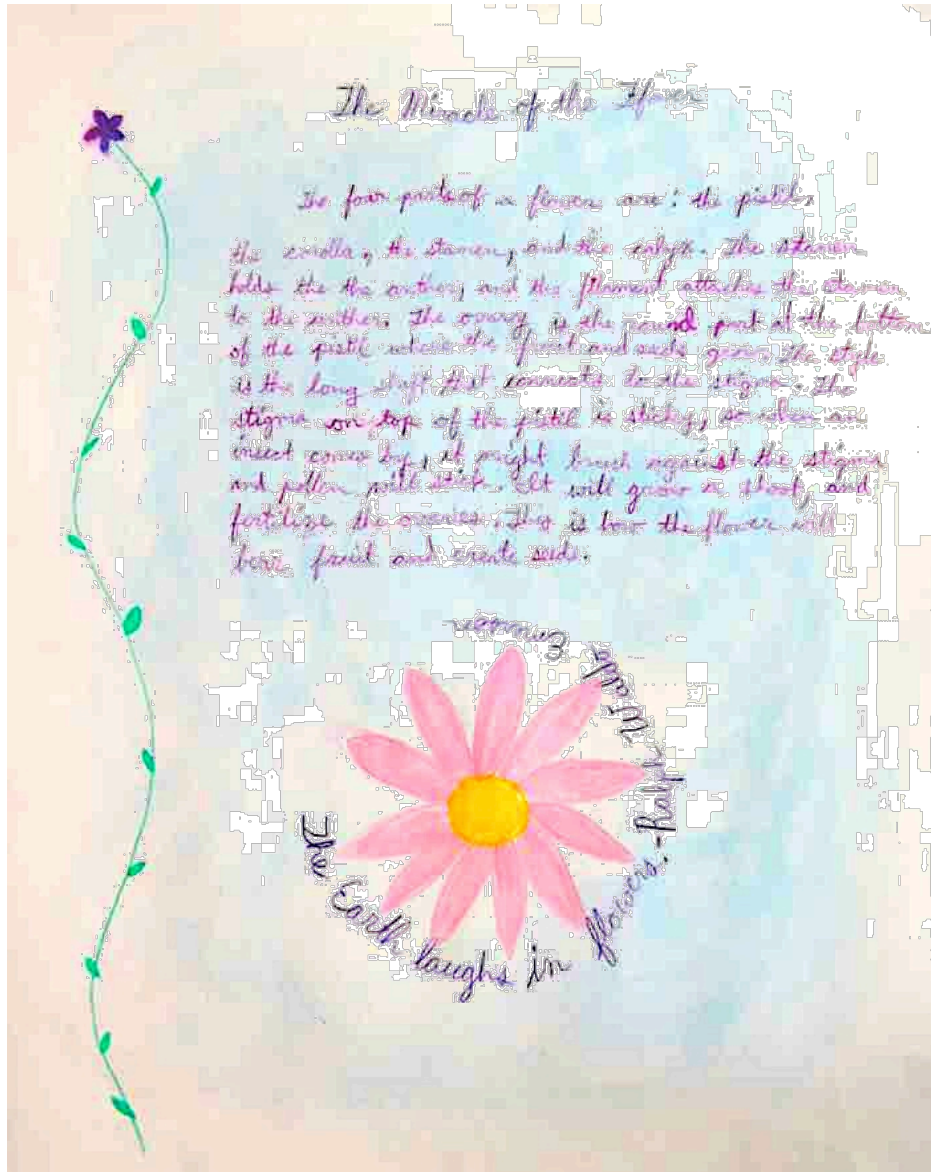 The Miracle of the Flower
The four parts of a flower are: the pistil,
the corolla, the stamen, and the calyx. The stamen
holds the the anther, and the filament attaches the stamen
to the anther. The ovary is the round part at the bottom
of the pistil where the fruit and seeds grow. The style
is the long shaft that connects to the stigma. The
stigma on top of the pistil is sticky, so when an
insect comes by, it might brush against the stigma
and pollen will stick. It will grow a shoot, and
fertilize the ovaries. This is how the flower will
bear fruit and create seeds.
The Earth laughs in flowers. -Ralph Waldo Emerson